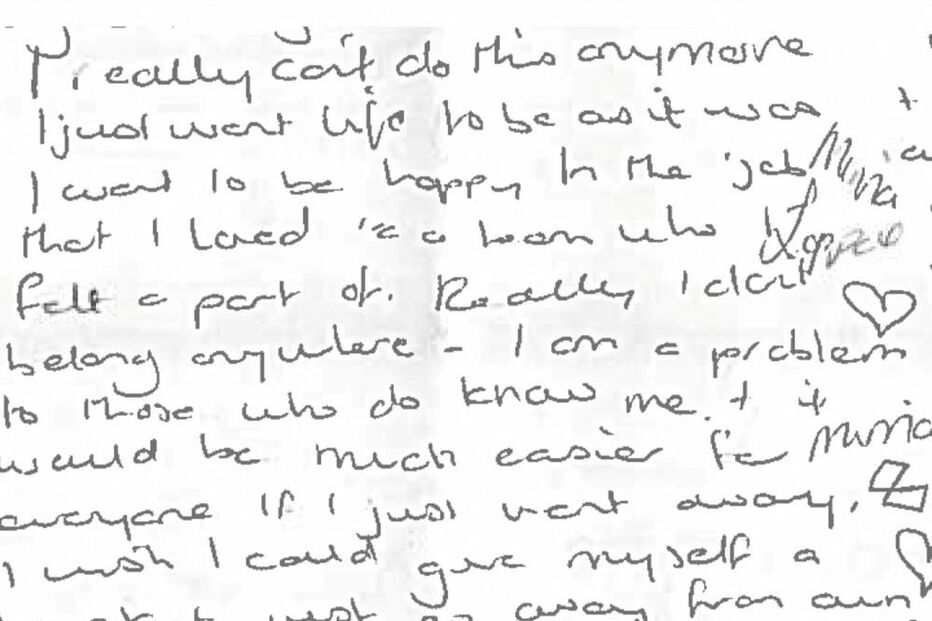 I really can't do this anymore
I just want life to be as it was +
I want to be happy in the job
that I loved a who
felt a part of. Really I don't
belong anywhere - I am a problem
to those who do know me + it
would be much easier for
everyone if I just went away.
I wish I could give myself a
just go away from